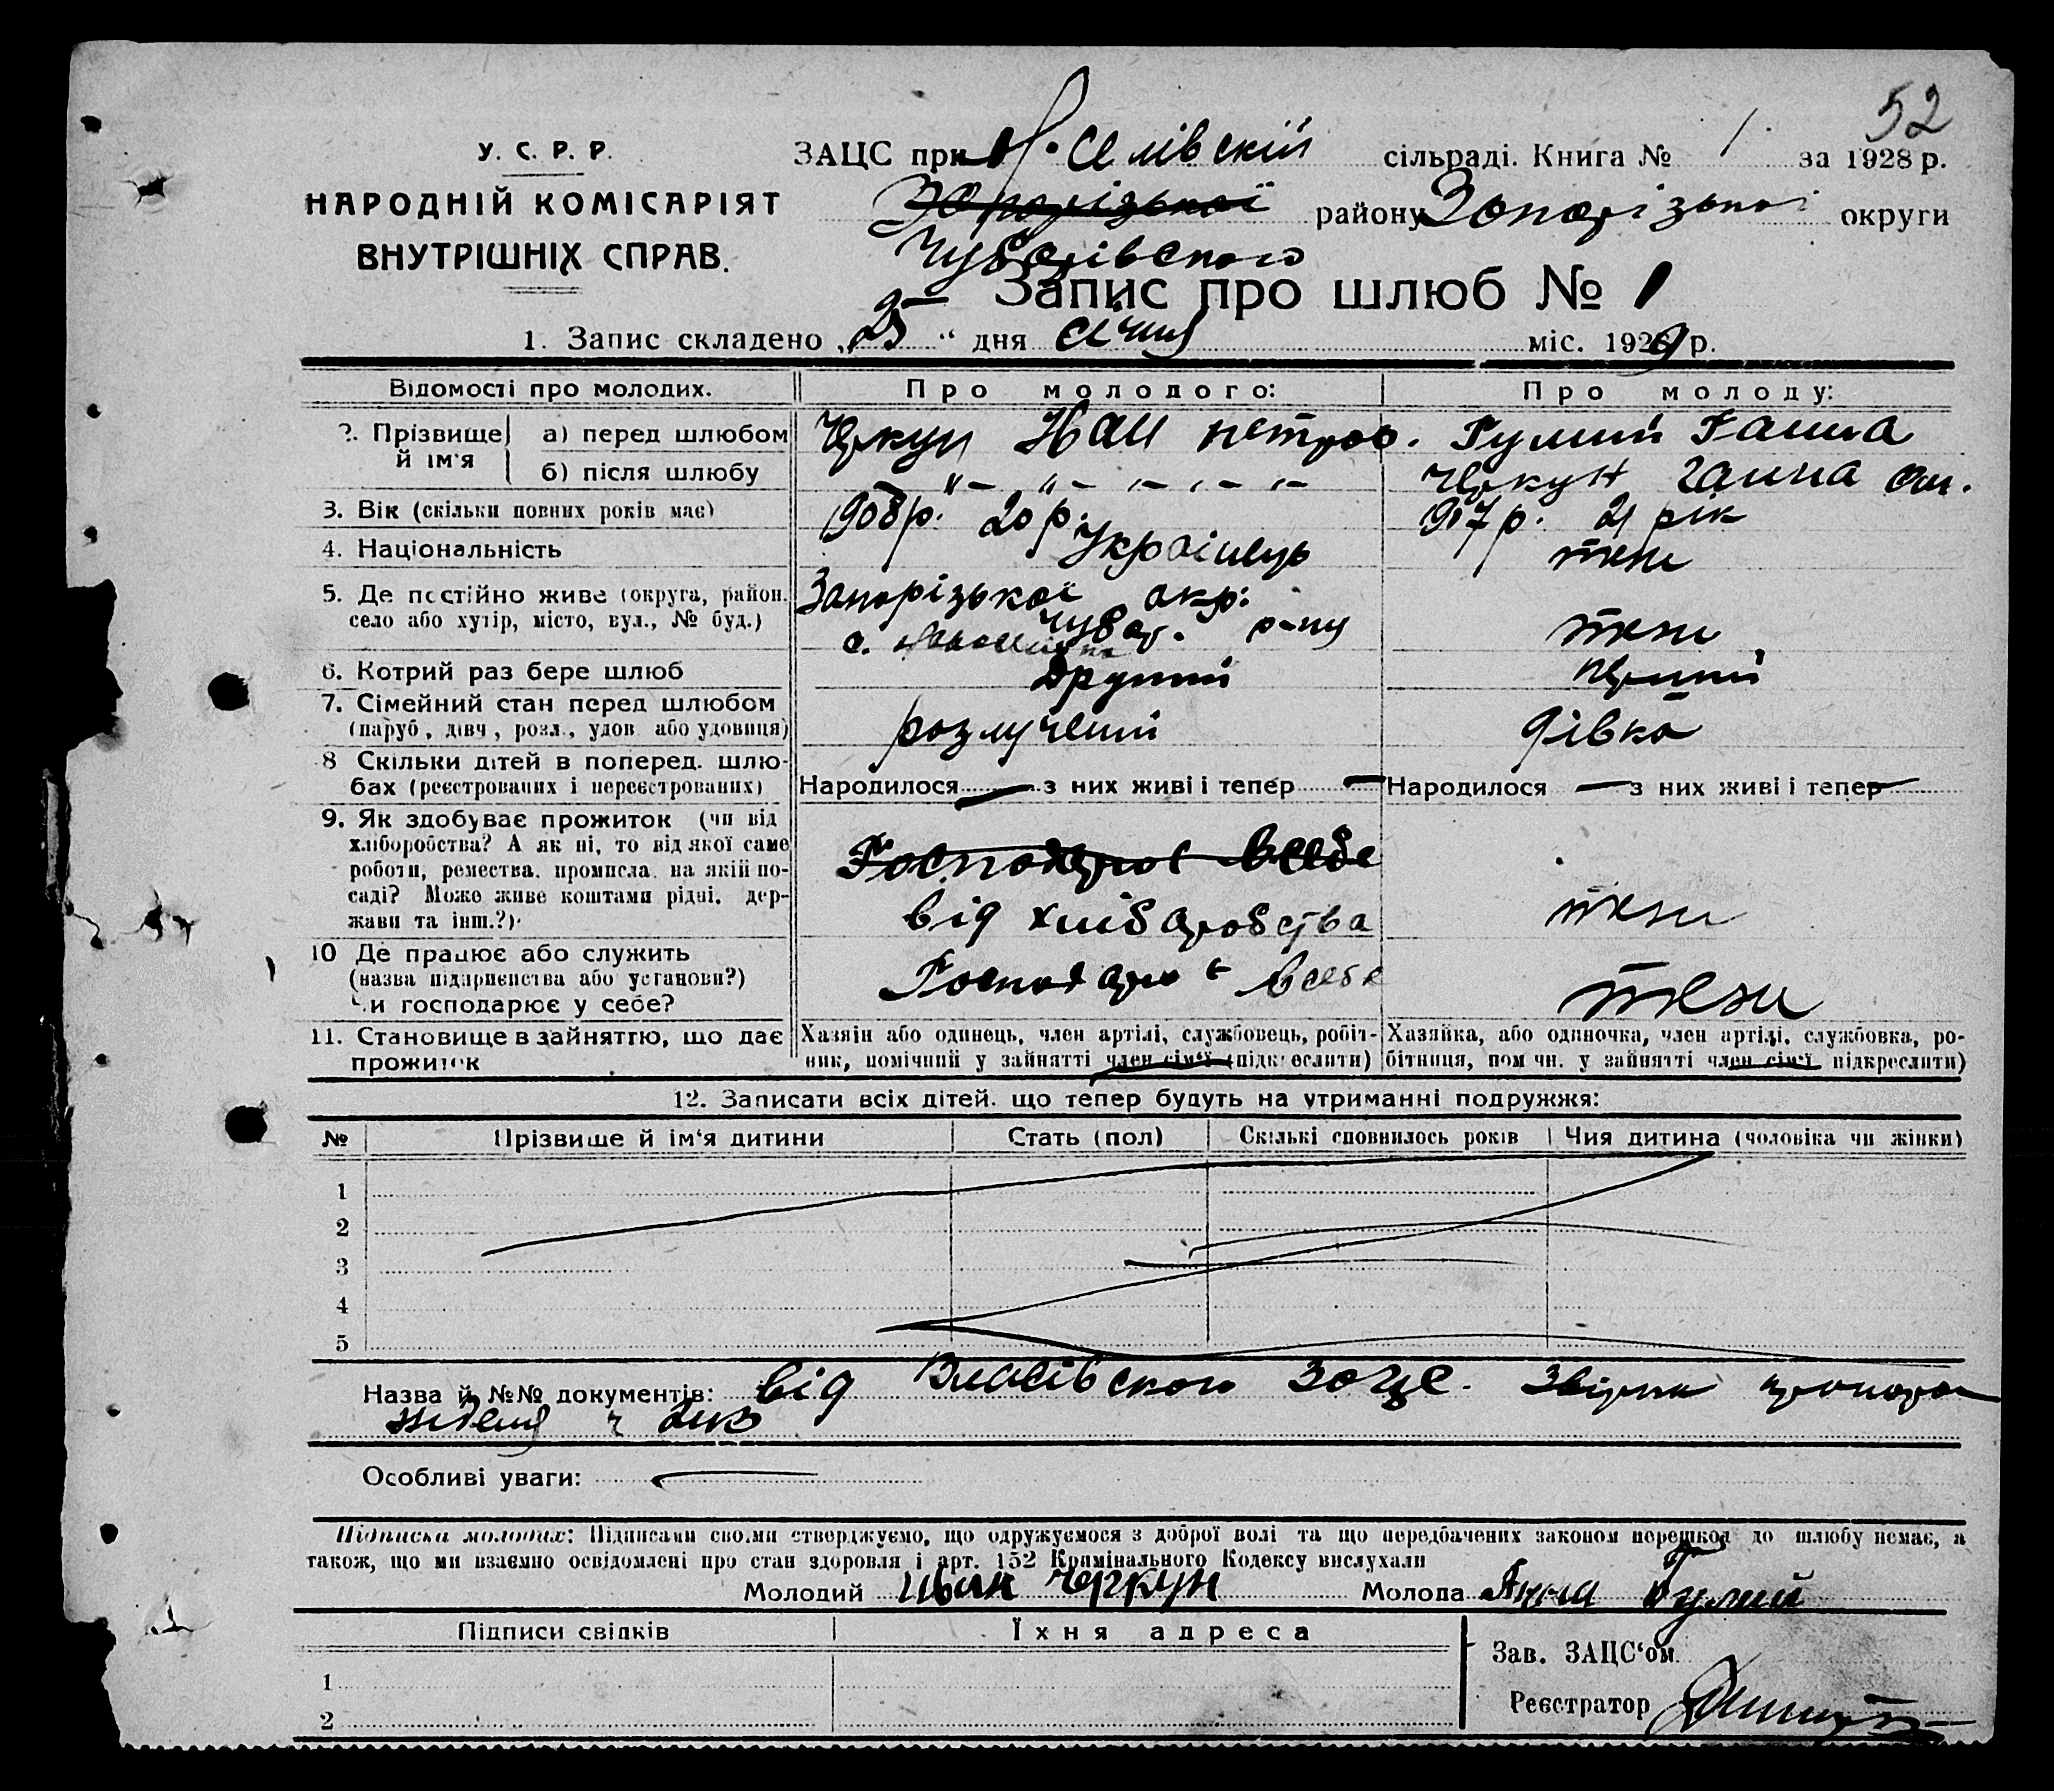 52
У. С. Р. Р.
НАРОДНІЙ КОМІСАРІЯТ
ВНУТРІШНІХ СПРАВ.
ЗАЦС при селівскій сільраді. Книга № 1 за 1928 р.
Запорізької району Запорізької округи
Чубарівского
Запис про шлюб № 1
1. Запис складено „25“ дня січня міс. 1929 р.
Відомості про молодих. Про молодого: Про молоду:
2. Прізвище й ім'я а) перед шлюбом Черкун Іван петров. Гулий Ганна
б) після шлюбу -"- -"- -"- Черкун Ганна
3. Вік (скільки повних років має) 1908 р. 20 р. 1907 р. 21 рік
4. Національність Українець теж
5. Де постійно живе (округа, район, Запорізької окр.
село або хутір, місто, вул., № буд.) с. Чубар. р-ну теж
6. Котрий раз бере шлюб Другий перший
7. Сімейний стан перед шлюбом розлучений дівка
(паруб., дівч., розл., удов. або удовиця)
8 Скільки дітей в поперед. шлю-
бах (реєстрованих і нереєстрованих) Народилося — з них живі і тепер — Народилося — з них живі і тепер —
9. Як здобуває прожиток (чи від
хліборобства? А як ні, то від якої саме Господарює в себе
роботи, ремества, промисла, на якій по-
саді? Може живе коштами рідні, дер- від хліборобства теж
жави та інш.?).
10 Де працює або служить
(назва підприємства або установи?) Господарює в себе теж
Чи господарює у себе?
11. Становище в зайняттю, що дає Хазяїн або одинець, член артілі, службовець, робіт- Хазяйка, або одиночка, член артілі, службовка, ро-
прожиток ник, помічний у зайнятті член сім'ї (підкреслити) бітниця, пом чн. у зайнятті член сім'ї підкреслити)
12. Записати всіх дітей, що тепер будуть на утриманні подружжя:
№ Прізвище й ім'я дитини Стать (пол) Скількі сповнилось років Чия дитина (чоловіка чи жінки)
1
2
3
4
5
Назва й №№ документів: від Власівского зацс.
Особливі уваги: —
Підписка молодих: Підписами своїми стверджуємо, що одружуємося з доброї волі та що передбачених законом перешкод до шлюбу немає, а
також, що ми взаємно освідомлені про стан здоровля і арт. 152 Кримінального Кодексу вислухали
Молодий Иван Черкун Молода Анна Гулий
Підписи свідків Їхня адреса
Зав. ЗАЦС'ом
1
Реєстратор
2